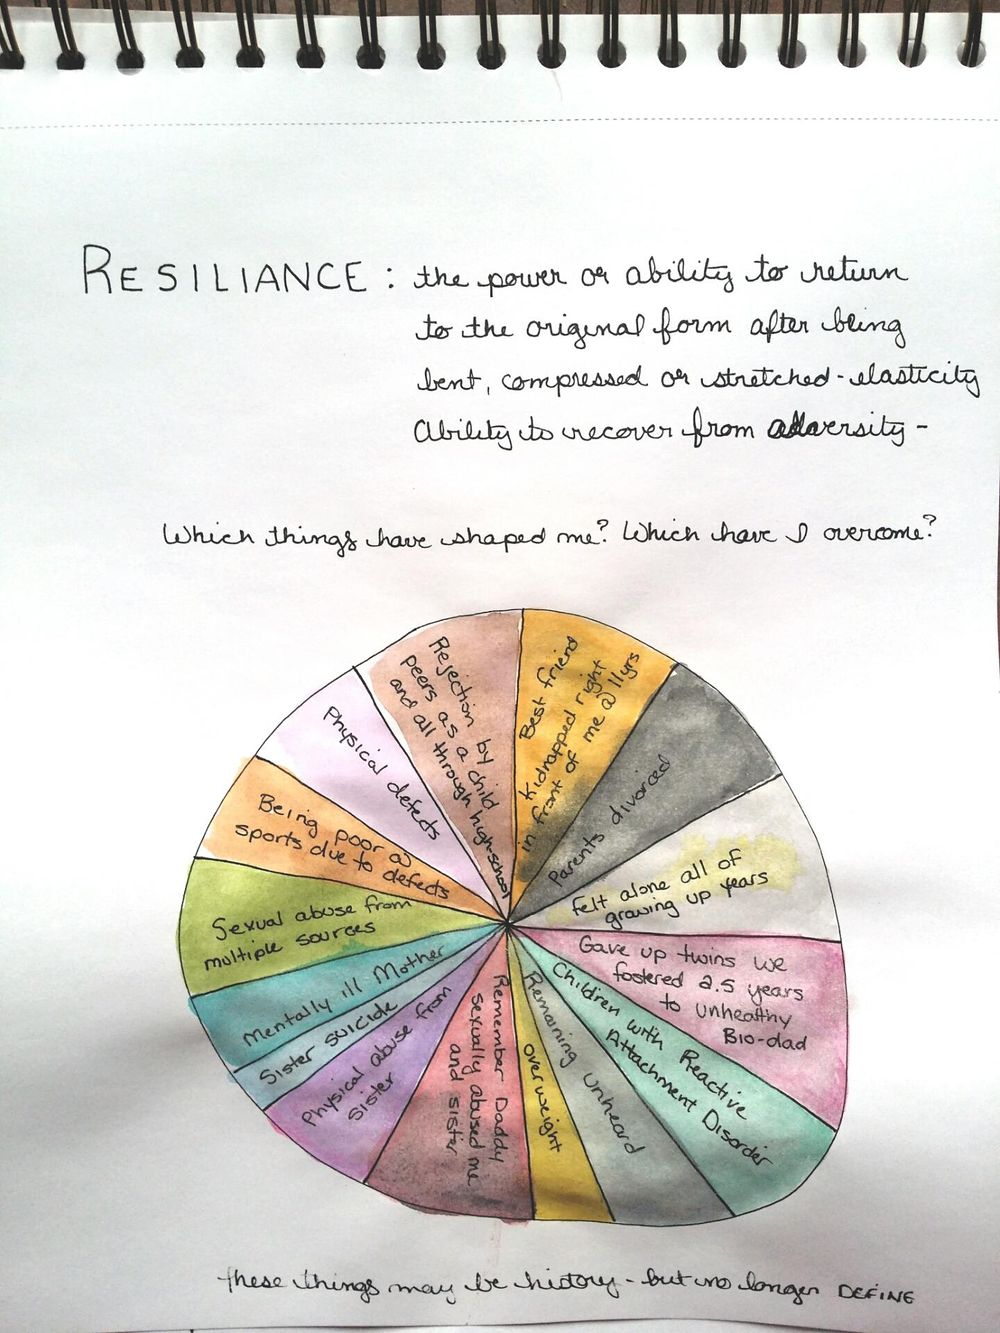 RESILIANCE: the power or ability to return
to the original form after being
bent, compressed or stretched - elasticity
Ability to recover from adversity -
Which things have shaped me? Which have I overcome?
Best friend
Kidnapped right
in front of me @ 11yrs
Parents divorced
felt alone all of
growing up years
Gave up twins we
fostered 2.5 years
to unhealthy
Bio-dad
Children with Reactive
Attachment Disorder
Remaining unheard
overweight
Remember Daddy
sexually abused me
and sister
Physical abuse from
sister
Sister suicide
Mentally ill Mother
Sexual abuse from
multiple sources
Being poor @
sports due to defects
Physical defects
Rejection by
peers as a child
and all through high-school
these things may be history - but no longer DEFINE